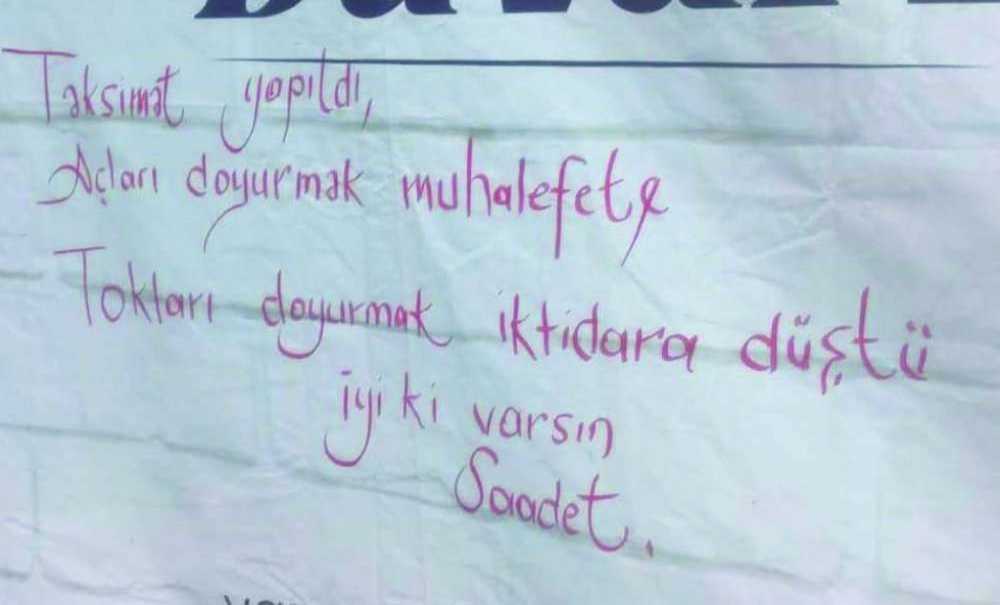 Taksimat yapıldı,
Açları doyurmak muhalefete
Tokları doyurmak iktidara düştü
iyi ki varsın
Saadet.